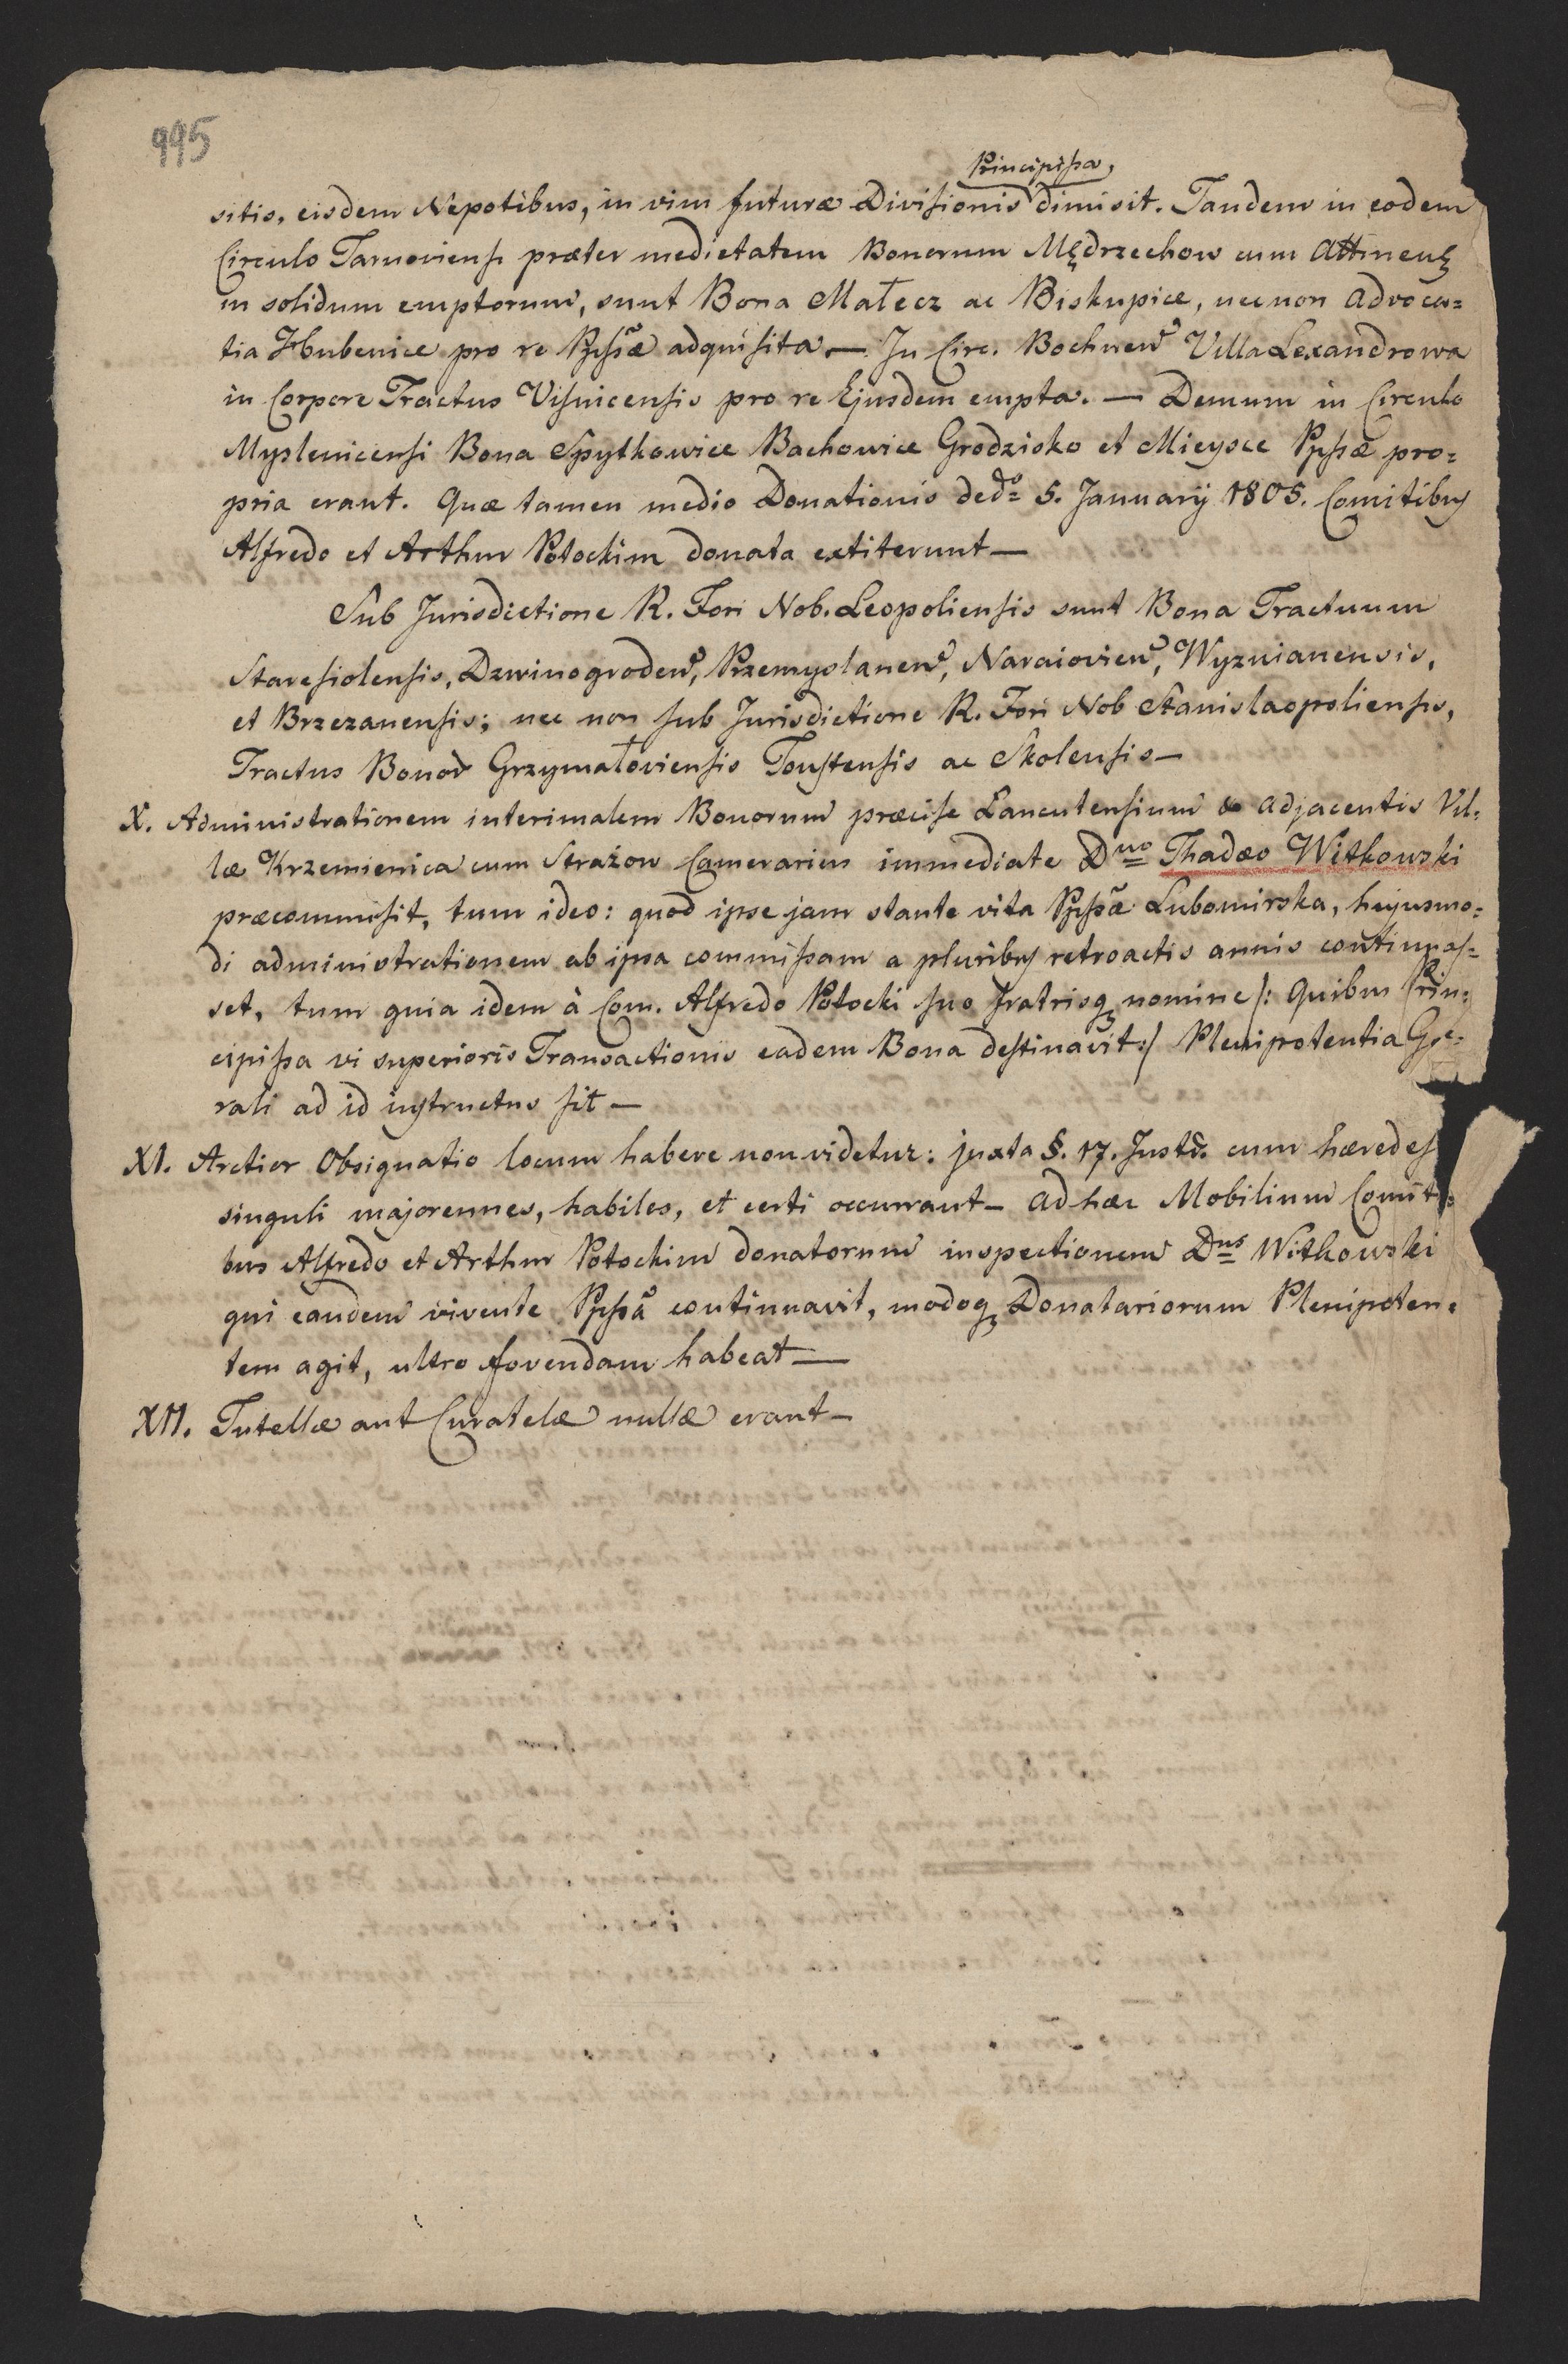 995
Principissa,
sitis, eisdem Nepotibus, in vim futuræ Divisionis dimisit. Tandem in eodem
Circulo Tarnoviensi præter medietatem Bonorum Mędrzechow cum Attinen̄
in solidum emptorum, sunt Bona Małecz ac Biskupice, nec non Advoca=
tia Hubenice pro re Ppssæ adquisita — In Circ. Bochnen̄ Villa Lexandrowa
in Corpore Tractus Visnicensis pro re Ejusdem empta. — Demum in Circulo
Myslenicensi Bona Spytkowice Bachowice Grodzisko et Mieysce Ppssæ pro=
pria erant. Quæ tamen medio Donationis de dº 5. Januarÿ 1805. Comitibus
Alfredo et Arthur Potockim donata extiterunt —
Sub Jurisdictione R. Fori Nob. Leopoliensis sunt Bona Tractuum
Staresiolensis, Dzwinogroden̄, Przemyslanen̄, Naraiovien̄, Wyznianensis,
et Brzezanensis; nec non sub Jurisdictione R. Fori Nob Stanislaopoliensis,
Tractus Bonor̄ Grzymałoviensis Toustensis ac Skolensis —
X. Administrationem interimalem Bonorum præcise Lancutensium & adjacentis Vil=
læ Krzemienica cum Strażow Camerarius immediate Dno Thadæo Witkowski
præcommisit, tum ideo: quod ipse jam stante vita Ppssæ Lubomirska, hujusmo=
di administrationem ab ipsa commissam a pluribus retroactis annis continuas=
set, tum quia idem à Com. Alfredo Potocki suo fratrisq nomine /: Quibus Prin=
cipissa vi superioris Transactionis eadem Bona destinavit :/ Plenipotentia Gne=
rali ad id instructus sit —
XI. Arctior Obsignatio locum habere non videtur: juxta §. 17. Instr̄. cum hæredes
singuli majorennes, habiles, et certi occurrant — ad hæc Mobilium Comiti=
bus Alfredo et Arthur Potockim donatorum inspectionem Dns Witkowski
qui eandem vivente Ppssa continuavit, modoq Donatariorum Plenipoten=
tem agit, ultro fovendam habeat —
XII. Tutellæ aut Curatelæ nullæ erant —